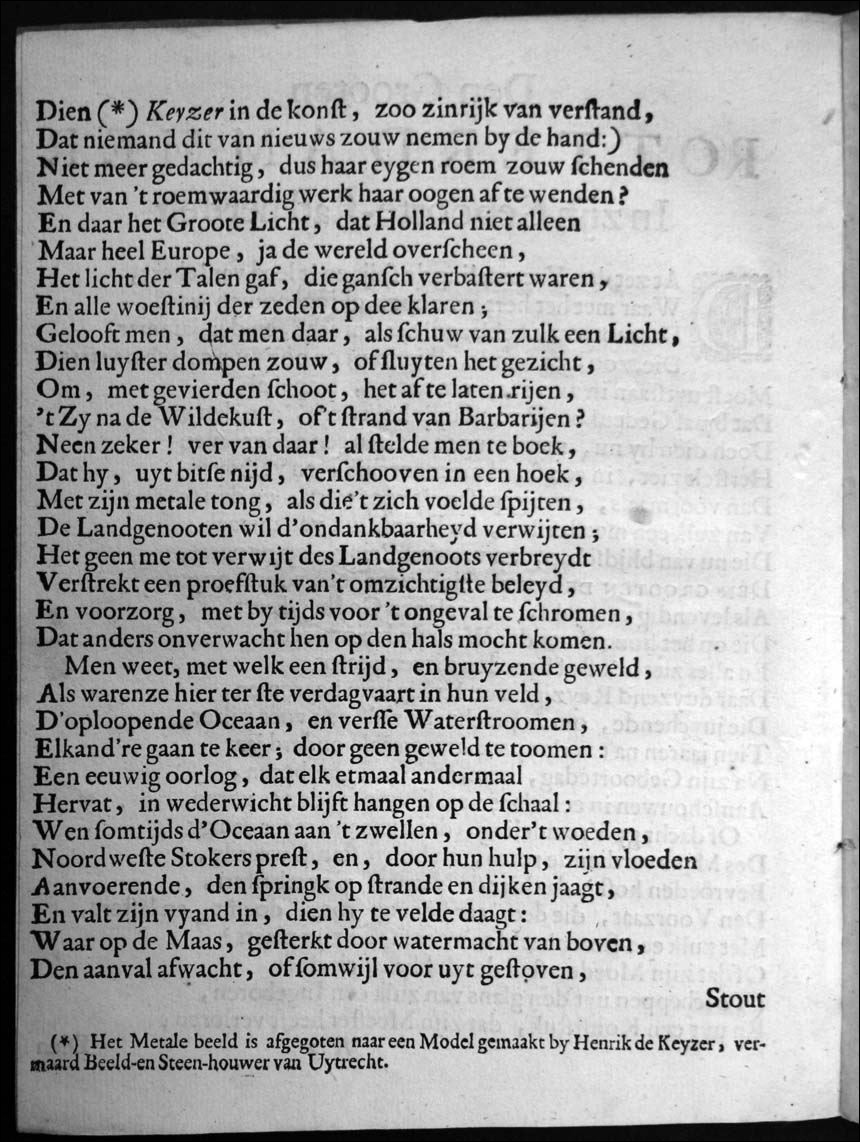 Dien (*) Keyzer in de konſt, zoo zinrijk van verſtand,
Dat niemand dit van nieuws zouw nemen by de hand:)
Niet meer gedachtig, dus haar eygen roem zouw ſchenden
Met van 't roemwaardig werk haar oogen af te wenden?
En daar het Groote Licht, dat Holland niet alleen
Maar heel Europe, ja de wereld overſcheen,
Het licht der Talen gaf, die ganſch verbaſtert waren,
En alle woeſtinij der zeden op dee klaren;
Gelooft men, dat men daar, als ſchuw van zulk een Licht,
Dien luyſter dompen zouw, of ſluyten het gezicht,
Om, met gevierden ſchoot, het af te laten rijen,
't Zy na de Wildekuſt, of't ſtrand van Barbarijen?
Neen zeker! ver van daar! al ſtelde men te boek,
Dat hy, uyt bitſe nijd, verſchooven in een hoek,
Met zijn metale tong, als die't zich voelde ſpijten,
De Landgenooten wil d'ondankbaarheyd verwijten;
Het geen me tot verwijt des Landgenoots verbreydt
Verſtrekt een proefſtuk van't omzichtigſte beleyd,
En voorzorg, met by tijds voor 't ongeval te ſchromen,
Dat anders onverwacht hen op den hals mocht komen.
Men weet, met welk een ſtrijd, en bruyzende geweld,
Als warenze hier ter ſte verdagvaart in hun veld,
D'oploopende Oceaan, en verſſe Waterſtroomen,
Elkand're gaan te keer; door geen geweld te toomen:
Een eeuwig oorlog, dat elk etmaal andermaal
Hervat, in wederwicht blijft hangen op de ſchaal:
Wen ſomtijds d'Oceaan aan 't zwellen, onder't woeden,
Noordweſte Stokers preſt, en, door hun hulp, zijn vloeden
Aanvoerende, den ſpringk op ſtrande en dijken jaagt,
En valt zijn vyand in, dien hy te velde daagt:
Waar op de Maas, geſterkt door watermacht van boven,
Den aanval afwacht, of ſomwijl voor uyt geſtoven,
Stout
(*) Het Metale beeld is afgegoten naar een Model gemaakt by Henrik de Keyzer, ver-
maard Beeld-en Steen-houwer van Uytrecht.